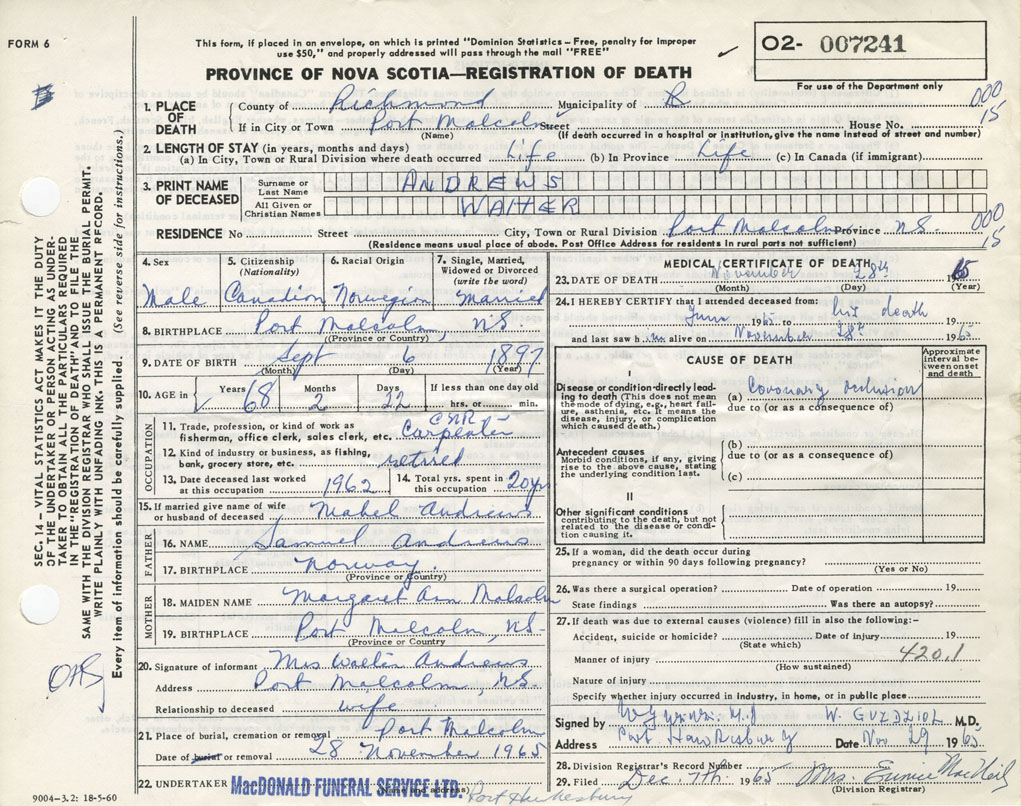 FORM 6
This form, if placed in an envelope, on which is printed "Dominion Statistics – Free, penalty for improper
use $50," and properly addressed will pass through the mail "FREE"
02- 007241
For use of the Department only
PROVINCE OF NOVA SCOTIA—REGISTRATION OF DEATH
1. PLACE OF DEATH
County of Richmond Municipality of R 000
If in City or Town Port Malcolm Street House No. 15
(Name) (If death occurred in a hospital or institution, give the name instead of street and number)
2. LENGTH OF STAY (in years, months and days)
(a) In City, Town or Rural Division where death occurred Life (b) In Province Life (c) In Canada (if immigrant)
3. PRINT NAME OF DECEASED
Surname or Last Name ANDREWS
All Given or Christian Names WALTER
RESIDENCE No Street City, Town or Rural Division Port Malcolm Province N.S. 000 15
(Residence means usual place of abode. Post Office Address for residents in rural parts not sufficient)
4. Sex Male
5. Citizenship (Nationality) Canadian
6. Racial Origin Norwegian
7. Single, Married, Widowed or Divorced (write the word) Married
8. BIRTHPLACE Port Malcolm, N.S.
(Province or Country)
9. DATE OF BIRTH Sept 6 1897
(Month) (Day) (Year)
10. AGE in Years 68 Months 2 Days 22 If less than one day old hrs. or min.
OCCUPATION
11. Trade, profession, or kind of work as fisherman, office clerk, sales clerk, etc. CNR Carpenter
12. Kind of industry or business, as fishing, bank, grocery store, etc. retired
13. Date deceased last worked at this occupation 1962
14. Total yrs. spent in this occupation 20 yrs
15. If married give name of wife or husband of deceased Mabel Andrews
FATHER
16. NAME Samuel Andrews
17. BIRTHPLACE Norway
(Province or Country)
MOTHER
18. MAIDEN NAME Margaret Ann Malcolm
19. BIRTHPLACE Port Malcolm, NS
(Province or Country)
20. Signature of informant Mrs. Walter Andrews
Address Port Malcolm, N.S.
Relationship to deceased wife
21. Place of burial, cremation or removal Port Malcolm
Date of burial or removal 28 November 1965
22. UNDERTAKER MacDONALD FUNERAL SERVICE LTD. Port Hawkesbury
(Name and address)
MEDICAL CERTIFICATE OF DEATH
23. DATE OF DEATH November 28th 65
(Month) (Day) (Year)
24. I HEREBY CERTIFY that I attended deceased from:
June 1965 to his death 19
and last saw h im alive on November 28th 1965
CAUSE OF DEATH
Approximate interval between onset and death
I
Disease or condition directly leading to death (This does not mean the mode of dying, e.g., heart failure, asthenia, etc. It means the disease, injury, or complication which caused death.)
(a) Coronary occlusion
due to (or as a consequence of)
Antecedent causes
Morbid conditions, if any, giving rise to the above cause, stating the underlying condition last.
(b)
due to (or as a consequence of)
(c)
II
Other significant conditions contributing to the death, but not related to the disease or condition causing it.
25. If a woman, did the death occur during pregnancy or within 90 days following pregnancy?
(Yes or No)
26. Was there a surgical operation? Date of operation 19
State findings Was there an autopsy?
27. If death was due to external causes (violence) fill in also the following:–
Accident, suicide or homicide? Date of injury 19
(State which)
Manner of injury 420.1
(How sustained)
Nature of injury
Specify whether injury occurred in industry, in home, or in public place
Signed by W. GUZDZIOL M.D.
Address Port Hawkesbury Date Nov 29 1965
28. Division Registrar's Record Number
29. Filed Dec. 7th 1965 Mrs. Eunice MacNeil
(Division Registrar)
SEC. 14 – VITAL STATISTICS ACT MAKES IT THE DUTY
OF THE UNDERTAKER OR PERSON ACTING AS UNDER-
TAKER TO OBTAIN ALL THE PARTICULARS REQUIRED
IN THE "REGISTRATION OF DEATH" AND TO FILE THE
SAME WITH THE DIVISION REGISTRAR WHO SHALL ISSUE THE BURIAL PERMIT.
WRITE PLAINLY WITH UNFADING INK. THIS IS A PERMANENT RECORD.
Every item of information should be carefully supplied. (See reverse side for instructions.)
9004-3.2: 18-5-60